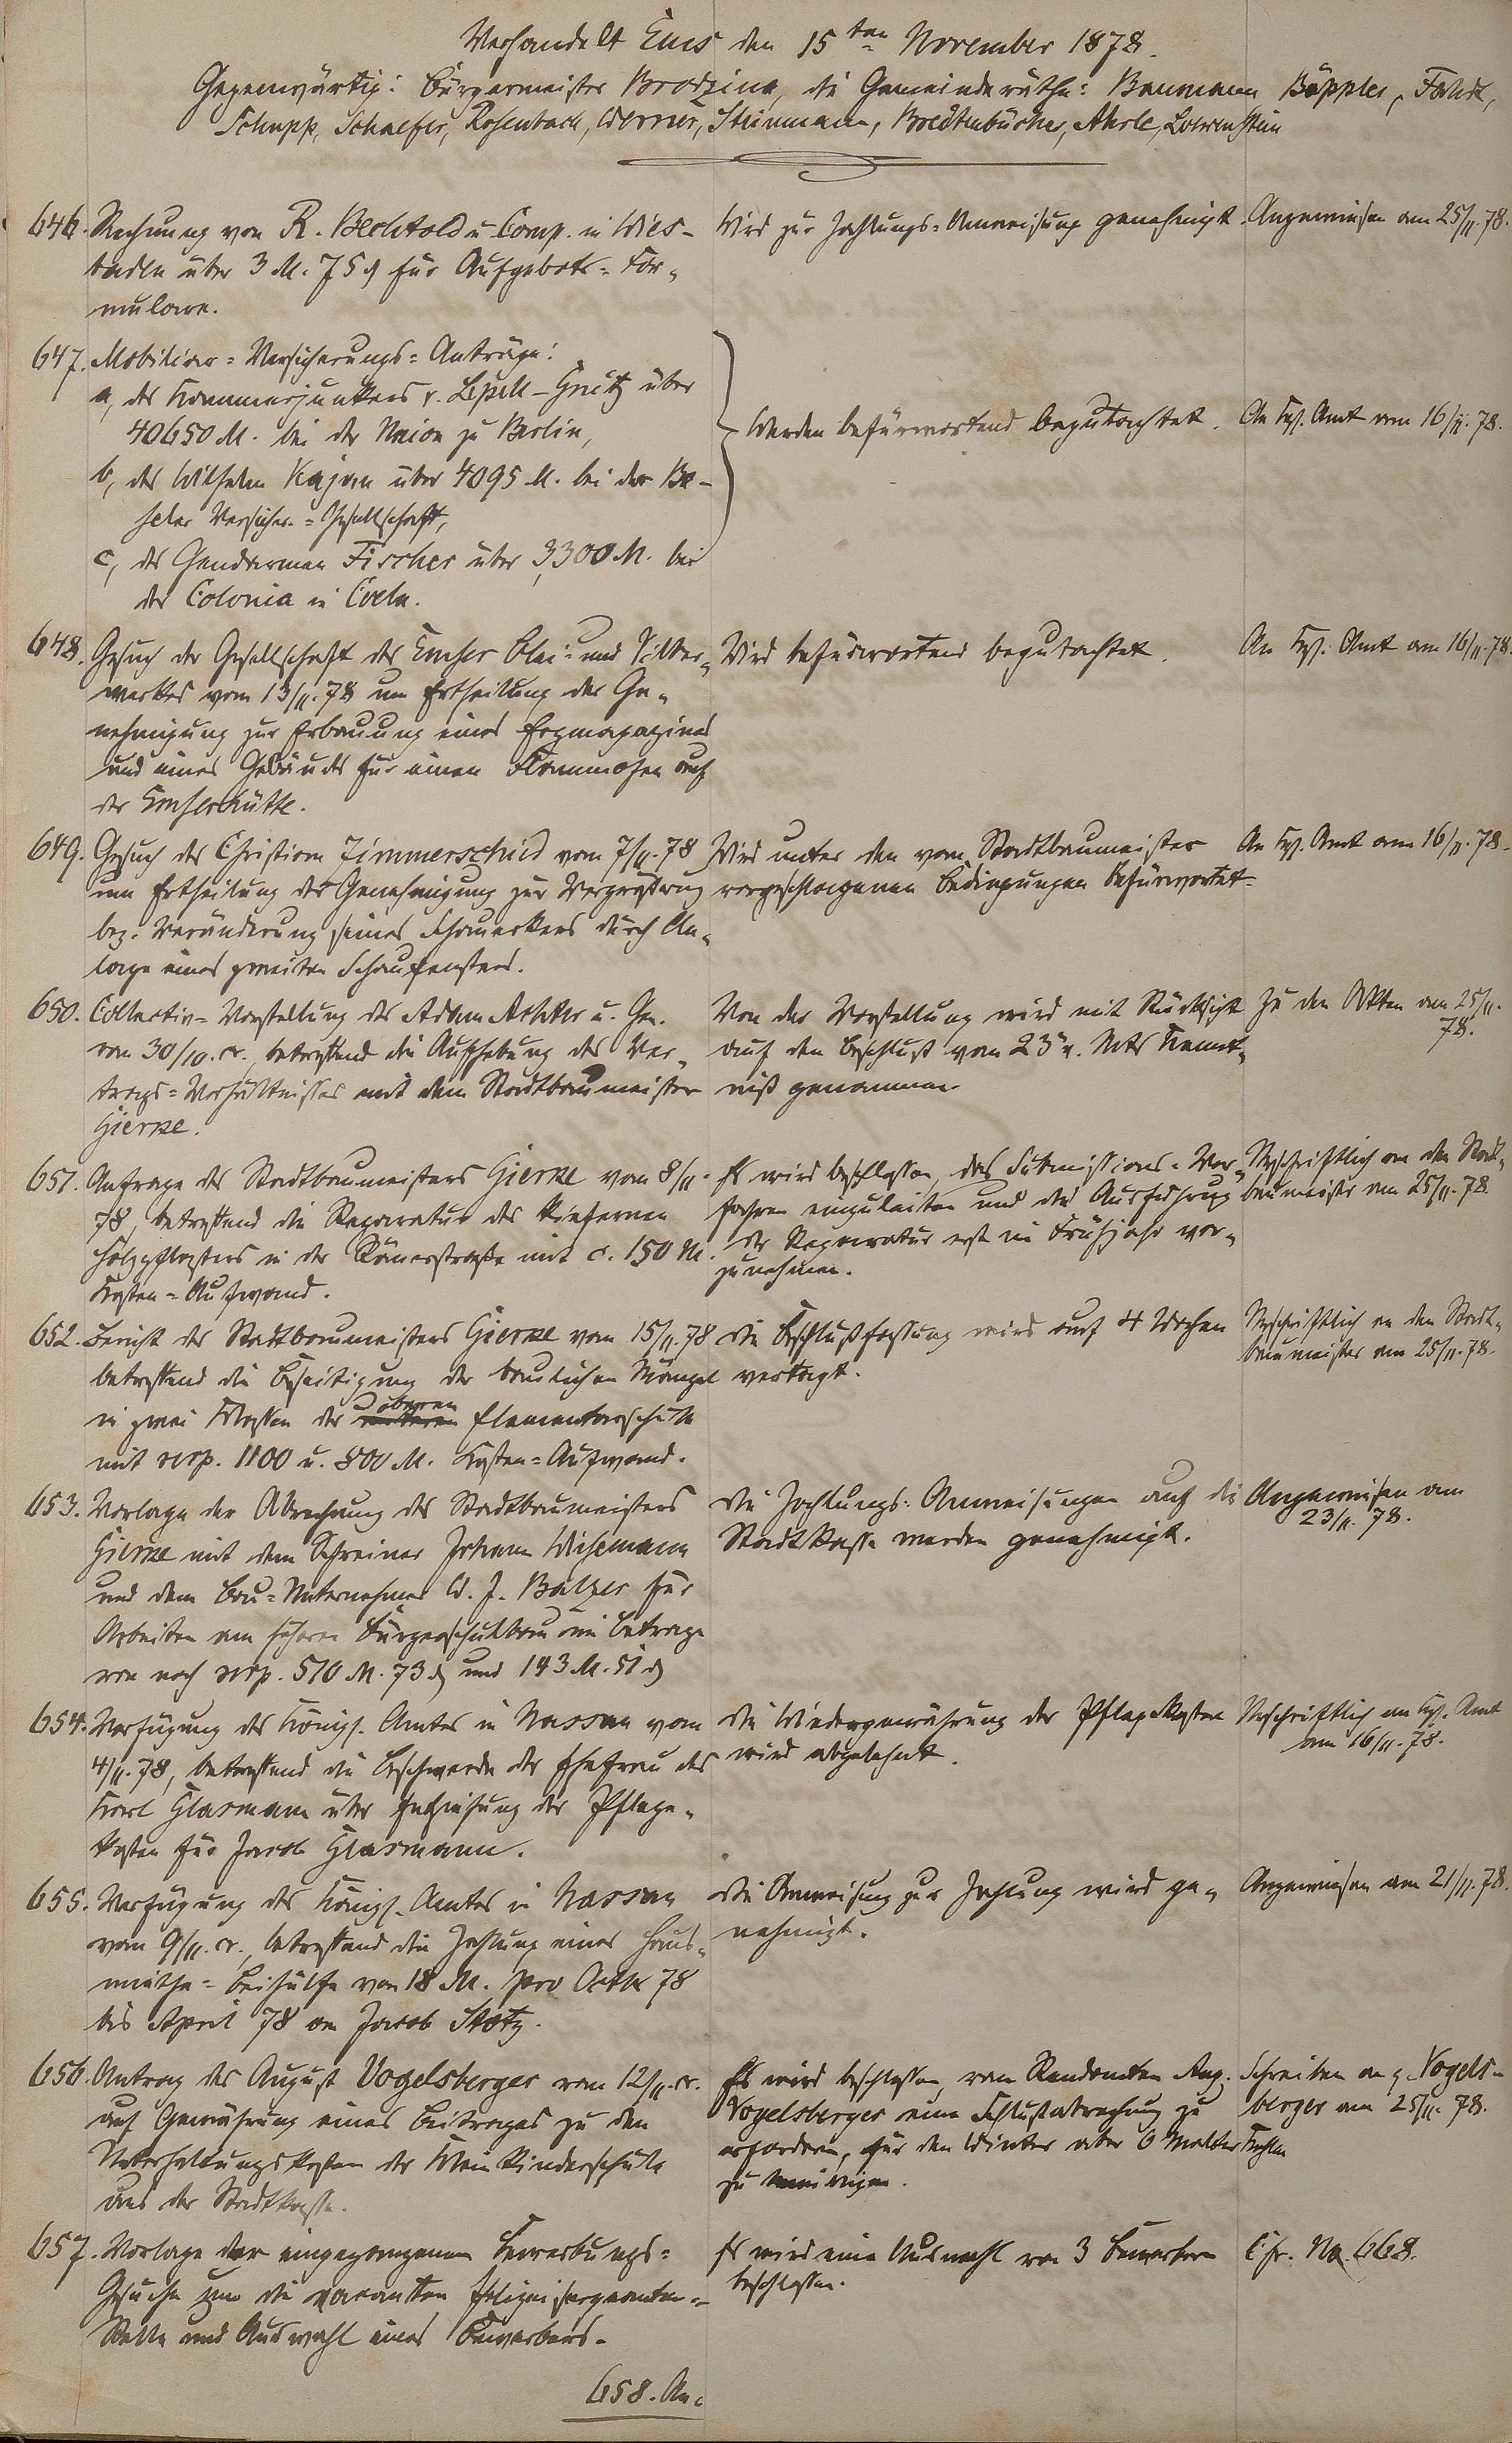 Verhandelt Ems den 15ten November 1878.
Gegenwärtig: Bürgermeister Brodzina, die Gemeinderäthe: Baumann, Bäppler, Fahdt,
Schupp, Schaefer, Rosenbach, Werner, Steinmann, Breitenbücher, Ahrle, Loewenstein
646. Rechnung von R. Bechtold u. Comp. in Wies-
baden über 3 M. 75 ₰ für Aufgebots-For-
mulare.
Wird zur Zahlungs-Anweisung genehmigt.
Angewiesen am 25/11. 78.
647. Mobiliar-Versicherungs-Anträge:
a, des Kammerjunkers v. Lepell-Gnitz über
40650 M. bei der Union zu Berlin,
b, des Wilhelm Kajan über 4095 M. bei der Ba-
seler Versicher.-Gesellschaft,
c, des Gendarmen Fischer über 3300 M. bei
der Colonia in Coeln.
Werden befürwortend begutachtet.
An Kgl. Amt am 16/11. 78.
648. Gesuch der Gesellschaft des Emser Blei- und Silber-
werkes vom 13/11. 78 um Ertheilung der Ge-
nehmigung zur Erbauung eines Erzmagazines
und eines Gebäudes für einen Flammofen auf
der Emserhütte.
Wird befürwortend begutachtet.
An Kgl. Amt am 16/11. 78.
649. Gesuch des Christian Zimmerschied vom 7/11. 78
um Ertheilung der Genehmigung zur Vergrößerung
bez. Veränderung seines Schauerkers durch An-
lage eines zweiten Schaufensters.
Wird unter den vom Stadtbaumeister
vorgeschlagenen Bedingungen befürwortet.
An Kgl. Amt am 16/11. 78.
650. Collectiv-Vorstellung des Adam u. Gen.
vom 30/10. cr., betreffend die Aufhebung des Ver-
trags-Verhältnisses mit dem Stadtbaumeister
Gierze.
Von der Vorstellung wird mit Rücksicht
auf den Beschluß vom 23n v. Mts Kennt-
niß genommen.
Zu den Akten am 25/11.
78.
651. Anfrage des Stadtbaumeisters Gierze vom 8/11.
78, betreffend die Reparatur des kiefernen
Holzpflasters in der Römerstraße mit c. 150 M.
Kosten-Aufwand.
Es wird beschlossen, das Submissions-Ver-
fahren einzuleiten und die Ausführung
der Reparatur erst im Frühjahr vor-
zunehmen.
Urschriftlich an den Stadt-
baumeister am 25/11. 78.
652. Bericht des Stadtbaumeisters Gierze vom 15/11. 78
betreffend die Beseitigung der baulichen Mängel
in zwei Klassen der oberen Elementarschule
mit resp. 1100 u. 800 M. Kosten-Aufwand.
Die Beschlußfassung wird auf 4 Wochen
vertagt.
Urschriftlich an den Stadt-
baumeister am 25/11. 78.
653. Vorlage der Abrechnung des Stadtbaumeisters
Gierze mit dem Schreiner Johann Wisemann
und dem Bau-Unternehmer W. J. Balzer für
Arbeiten am höheren Bürgerschulbau im Betrage
von noch resp. 510 M. 73 ₰ und 143 M. 51 ₰
Die Zahlungs-Anweisungen auf die
Stadtkasse werden genehmigt.
Angewiesen am
23/11. 78.
654. Verfügung des Königl. Amtes in Nassau vom
4/11. 78, betreffend die Beschwerde der Ehefrau des
Karl Glasmann über Entziehung der Pflege-
kosten für Jacob Glasmann.
Die Wiedergewährung der Pflegekosten
wird abgelehnt.
Urschriftlich an Kgl. Amt
am 16/11. 78.
655. Verfügung des Königl. Amtes in Nassau
vom 9/11. cr., betreffend die Zahlung einer Haus-
miethe-Beihülfe von 18 M. pro Octbr 78
bis April 78 an Jacob Stotz.
Die Anweisung zur Zahlung wird ge-
nehmigt.
Angewiesen am 21/11. 78.
656. Antrag des August Vogelsberger vom 12/11. cr.
auf Gewährung eines Beitrages zu den
Unterhaltungskosten der Kleinkinderschule
aus der Stadtkasse.
Es wird beschlossen, vom Rendanten Aug.
Vogelsberger eine Schlußabrechnung zu
erfordern, für den Winter aber 6 Malter
zu
Schreiben an H. Vogels-
berger am 25/11. 78.
657. Vorlage der eingegangenen Bewerbungs-
Gesuche um die vacanten Polizeisergeanten-
Stelle und Auswahl eines Bewerbers.
Es wird eine Auswahl von 3 Bewerbern
beschlossen.
Cfr. No. 668.
658. An-